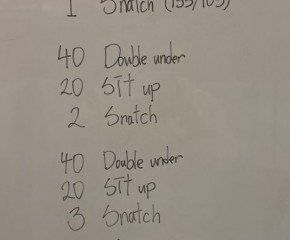 1 Snatch (155/105)
40 Double under
20 Sit up
2 Snatch
40 Double under
20 Sit up
3 Snatch